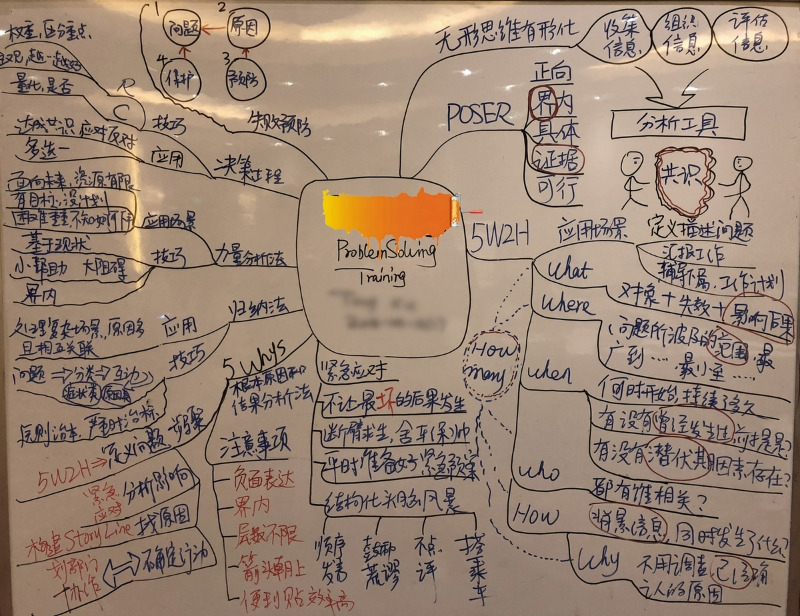 Problem Solving
Training
无形思维有形化
收集
信息
组织
信息
评估
信息
分析工具
共识
POSER
正向
界内
具体
证据
可行
5W2H
应用场景
定义描述问题
汇报工作
辅导下属,工作计划
what
对象+失效+影响后果
where
问题所波及的范围
广到……最小至……
when
何时开始,持续了多久
有没有曾经发生过
有没有潜伏其因素存在?
who
都有谁相关?
How
背景信息
同时发生了什么?
Why
不用调查已经确
之人的原因
How
many
1
问题
2
原因
3
预防
4
保护
失败预防
决策过程
技巧
应用
权重,区分重点
量化,是否
R
C
达成共识 应对反对
多选一
力量分析法
应用场景
面向未来,资源有限
有目标,没计划
困难重重不知如何下
技巧
基于现状
小帮助 大阻碍
界内
归纳法
应用
且相互关联
技巧
问题→分类→互动
5 Whys
根本原因和
结果分析法
步骤
定义问题
5W2H
分析影响
紧急
应对
找原因
构建Story Line
确定行动
注意事项
负面表达
界内
层数不限
箭头朝上
便利贴效率高
紧急应对
不让最坏的后果发生
断臂求生,舍车(保)帅
平时准备好紧急预案
结构化头脑风暴
顺序
发言
鼓励
荒谬
不点
评
搭
乘
车